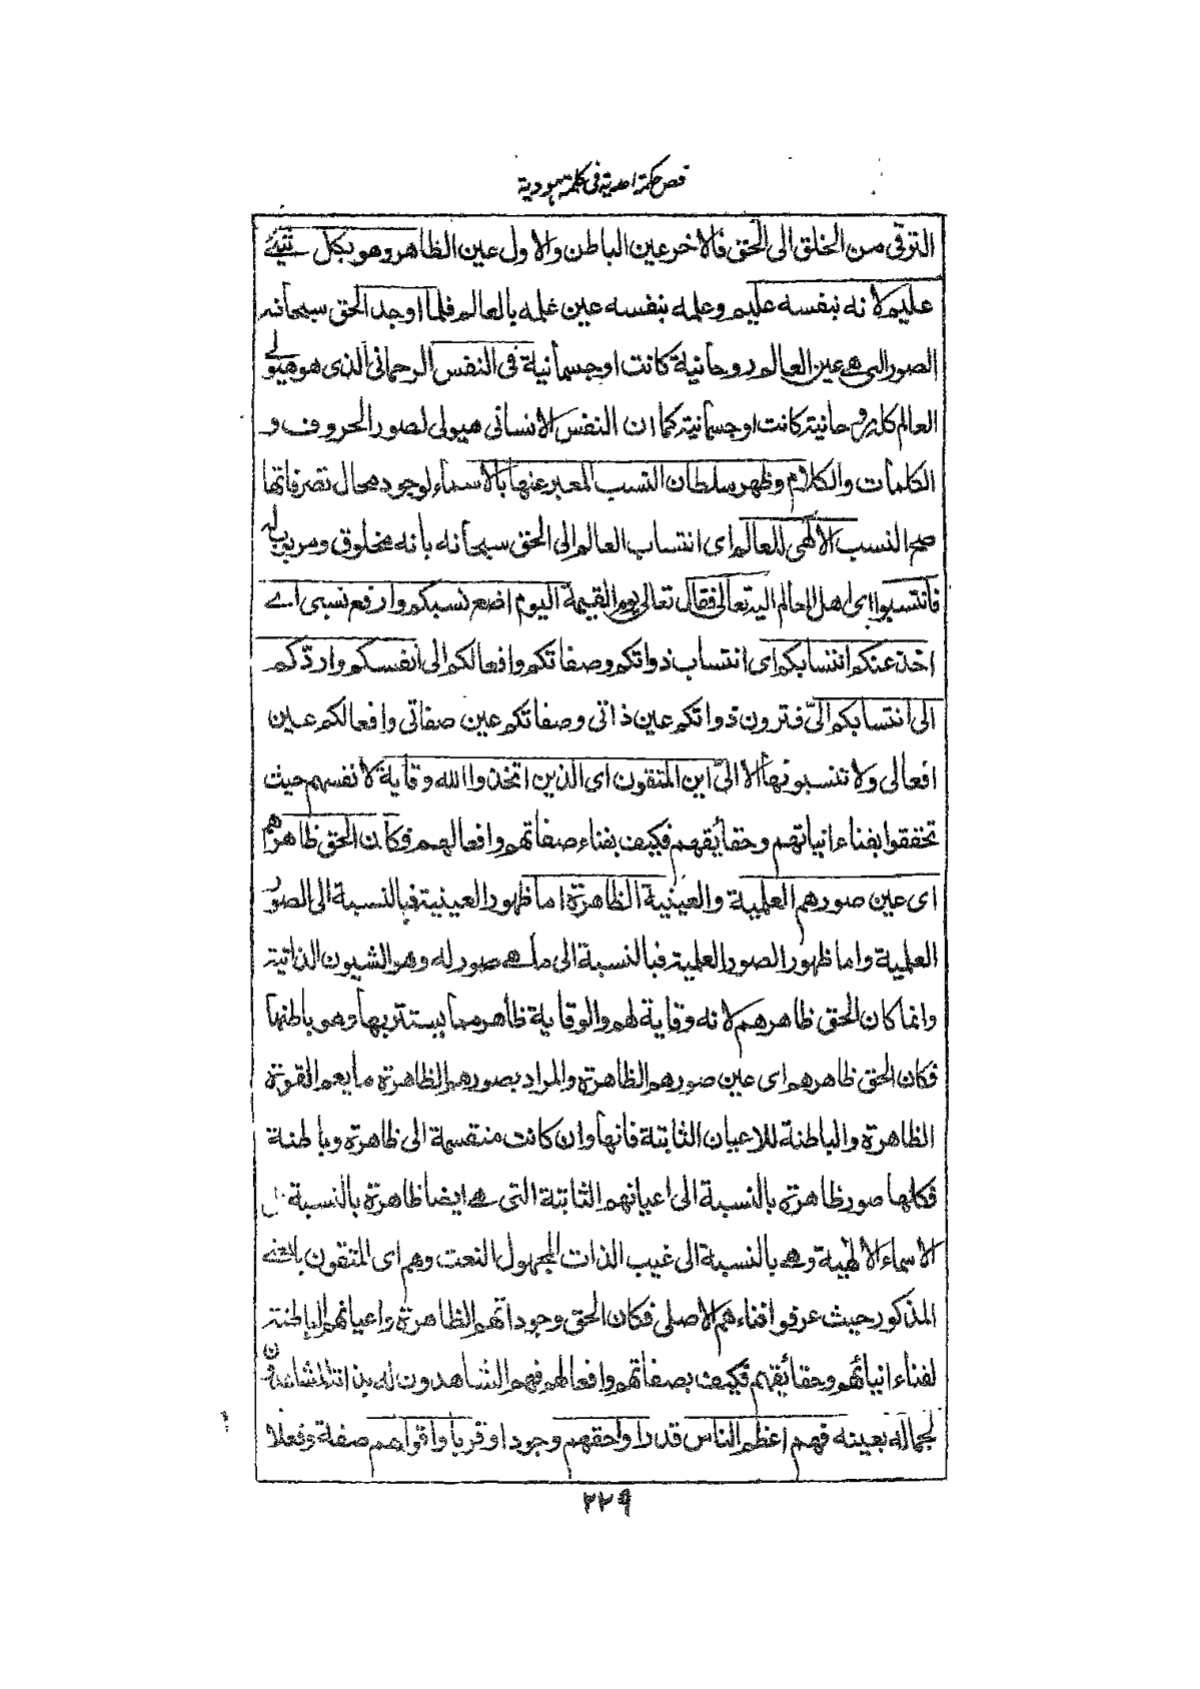 فص حكمة احدية فى كلمة هودية
الترقى من الخلق الى الحق فالاخر عين الباطن والاول عين الظاهر وهو بكل شئ
عليم لانه بنفسه عليم وعلمه بنفسه عين علمه بالعالم فلما اوجد الحق سبحانه
الصور التى هى عين العالم روحانية كانت او جسمانية فى النفس الرحمانى الذى هو هيولى
العالم كله روحانية كانت او جسمانية كما ان النفس الانسانى هيولى لصور الحروف و
الكلمات والكلام وظهر سلطان النسب المعبر عنها بالاسماء لوجود محال تصرفاتها
صح النسب الالٰهى للعالم اى انتساب العالم الى الحق سبحانه بانه مخلوق ومربوب له
فانتسبوا اى اهل العالم اليه تعالى فقال تعالى يوم القيمة اليوم اضع نسبكم وارفع نسبى اے
اخذ عنكم انتسابكم اى انتساب ذواتكم وصفاتكم وافعالكم الى انفسكم واردّكم
الى انتسابكم الىّ فترون ذواتكم عين ذاتى وصفاتكم عين صفاتى وافعالكم عين
افعالى ولا تنسبونها الا الىّ اين المتقون اى الذين اتخذوا الله وقاية لانفسهم حيث
تحققوا بفناء انياتهم وحقائقهم فكيف بفناء صفاتهم وافعالهم فكان الحق ظاهرهم
اى عين صورهم العلمية والعينية الظاهرة اما ظهور العينية فبالنسبة الى الصور
العلمية واما ظهور الصور العلمية فبالنسبة الى ما هى صور له وهو الشيون الذاتية
وانما كان الحق ظاهرهم لانه وقاية لهم والوقاية ظاهر مما يستتر بها وهو باطنها
فكان الحق ظاهرهم اى عين صورهم الظاهرة والمراد بصورهم الظاهرة ما يعم القوة
الظاهرة والباطنة للاعيان الثابتة فانها وان كانت منقسمة الى ظاهرة وباطنة
فكلها صور ظاهرة بالنسبة الى اعيانهم الثابتة التى هى ايضا ظاهرة بالنسبة
الاسماء الالٰهية وهى بالنسبة الى غيب الذات المجهول النعت وهم اى المتقون بالمعنى
المذكور حيث عرفوا فناءهم الاصلى فكان الحق وجوداتهم الظاهرة واعيانهم الباطنة
لفناء انياتهم وحقائقهم فكيف بصفاتهم وافعالهم فهم الشاهدون له بذاته المشاهدون
لجماله بعينه فهم اعظم الناس قدرا واحقهم وجودا وقربا واقواهم صفة وفعلا
٢٢٩